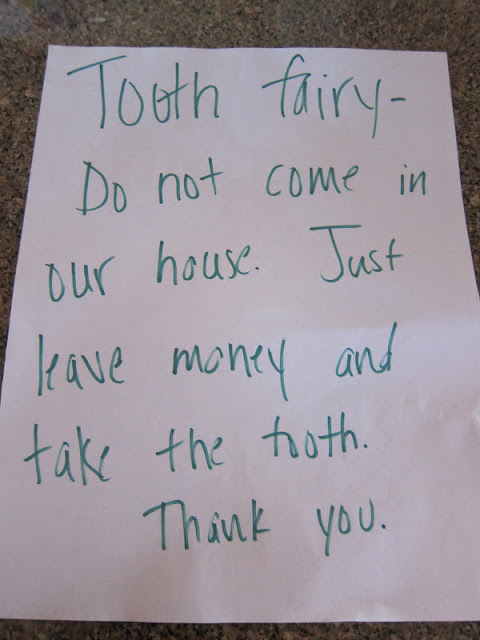 Tooth fairy-
Do not come in
our house. Just
leave money and
take the tooth.
Thank you.